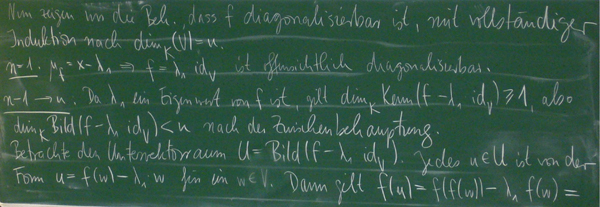 Nun zeigen wir die Beh., dass f diagonalisierbar ist, mit vollständiger
Induktion nach dim_K(V)=n.
n=1. μ_f = x-λ₁ ⇒ f = λ₁ id_V ist offensichtlich diagonalisierbar.
n-1 → n. Da λ₁ ein Eigenwert von f ist, gilt dim_K Kern(f - λ₁ id_V) ≥ 1, also
dim_K Bild(f - λ₁ id_V) < n nach der Zwischenbehauptung.
Betrachte den Untervektorraum U = Bild(f - λ₁ id_V). Jedes u∈U ist von der
Form u = f(w) - λ₁ w für ein w∈V. Dann gilt f(u) = f(f(w)) - λ₁ f(w) =